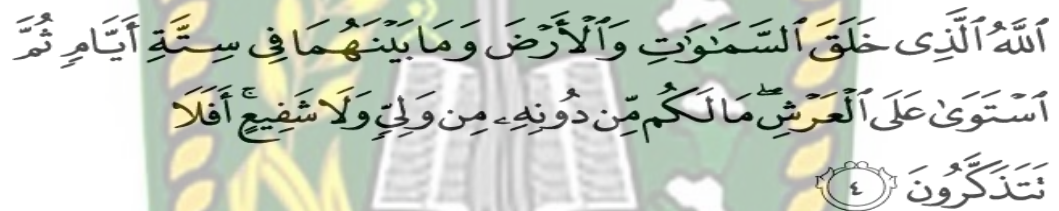 ٱللَّهُ ٱلَّذِى خَلَقَ ٱلسَّمَـٰوَٰتِ وَٱلْأَرْضَ وَمَا بَيْنَهُمَا فِى سِتَّةِ أَيَّامٍ ثُمَّ
ٱسْتَوَىٰ عَلَى ٱلْعَرْشِ ۖ مَا لَكُم مِّن دُونِهِۦ مِن وَلِىٍّ وَلَا شَفِيعٍ ۚ أَفَلَا
تَتَذَكَّرُونَ ٤